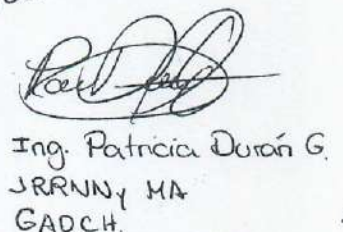 Ing. Patricia Durán G.
JRRNNy MA
GADCH.